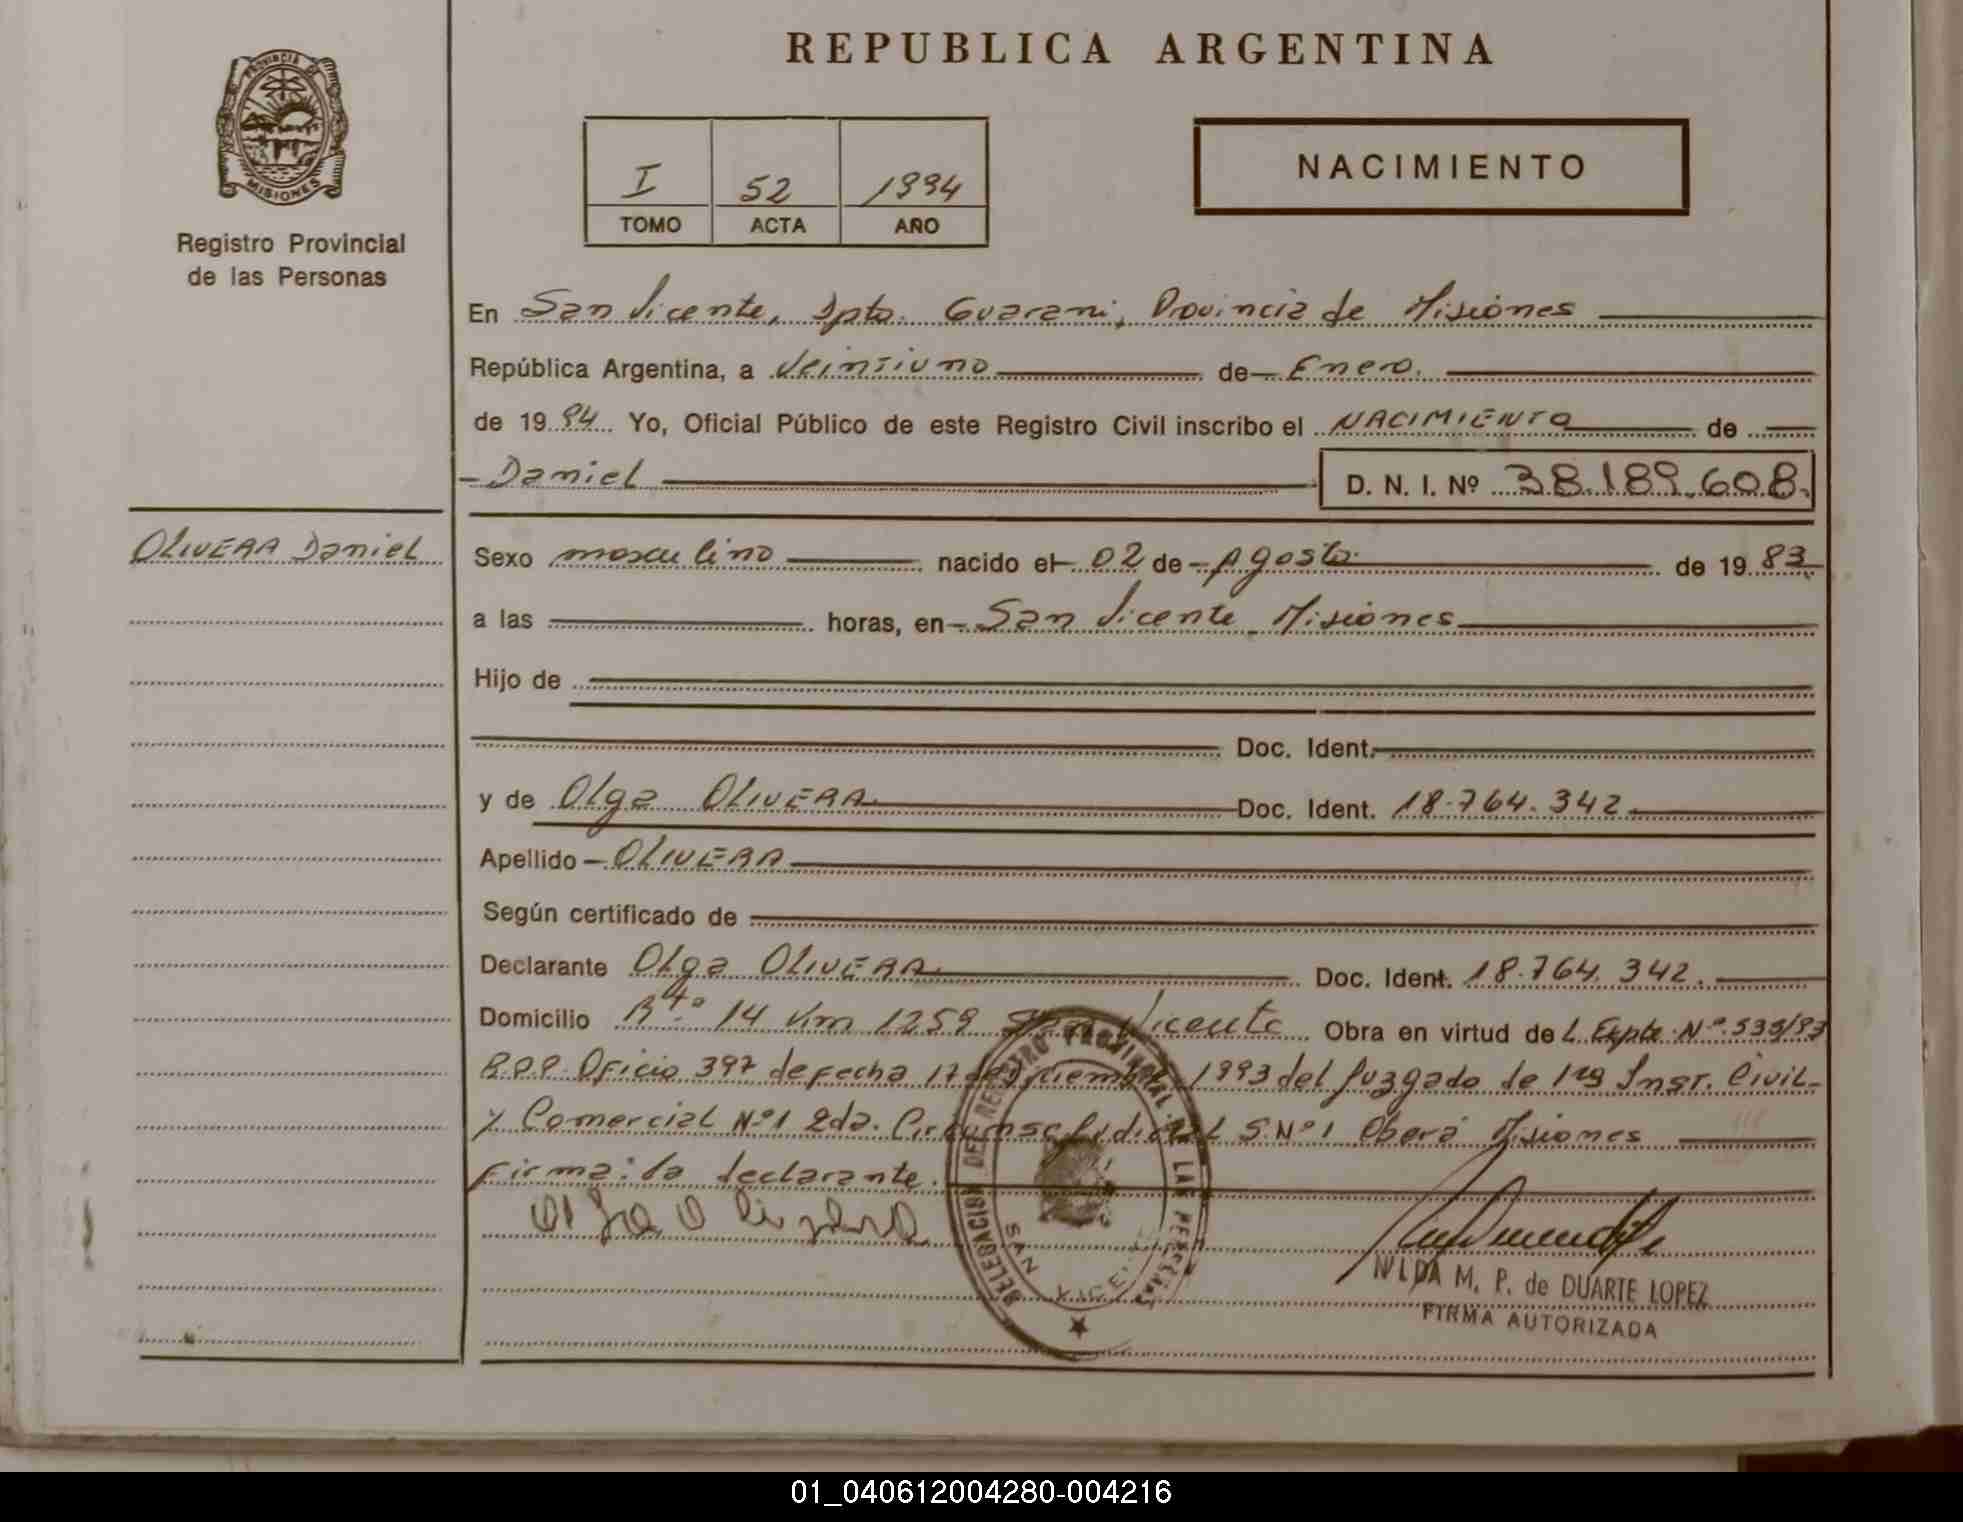 REPUBLICA ARGENTINA
PROVINCIA DE
MISIONES
Registro Provincial
de las Personas
I 52 1994
TOMO ACTA AÑO
NACIMIENTO
En San Vicente, Dpto. Guarani, Provincia de Misiones
República Argentina, a Veintiuno de Enero.
de 19 94 Yo, Oficial Público de este Registro Civil inscribo el NACIMIENTO de
Daniel D. N. I. Nº 38.189.608.
OLIVERA Daniel
Sexo masculino nacido el 02 de Agosto de 19 83
a las horas, en San Vicente Misiones
Hijo de
Doc. Ident.
y de Olga OLIVERA Doc. Ident. 18.764.342
Apellido OLIVERA
Según certificado de
Declarante Olga OLIVERA Doc. Ident. 18.764.342.
Domicilio Rta. 14 Km 1259 San Vicente Obra en virtud de L. Expte. Nº 535/93
R.P.P. Oficio 397 de fecha 17 de 1993 del Juzgado de 1ra Inst. Civil
y Comercial Nº 1 2da. Circunsc. Judicial S. Nº 1 Oberá Misiones
Firma: la declarante.
Olga Olivera
DELEGACION DEL REGISTRO PROVINCIAL DE LAS PERSONAS
SAN VICENTE
NILDA M. P. de DUARTE LOPEZ
FIRMA AUTORIZADA
01_040612004280-004216